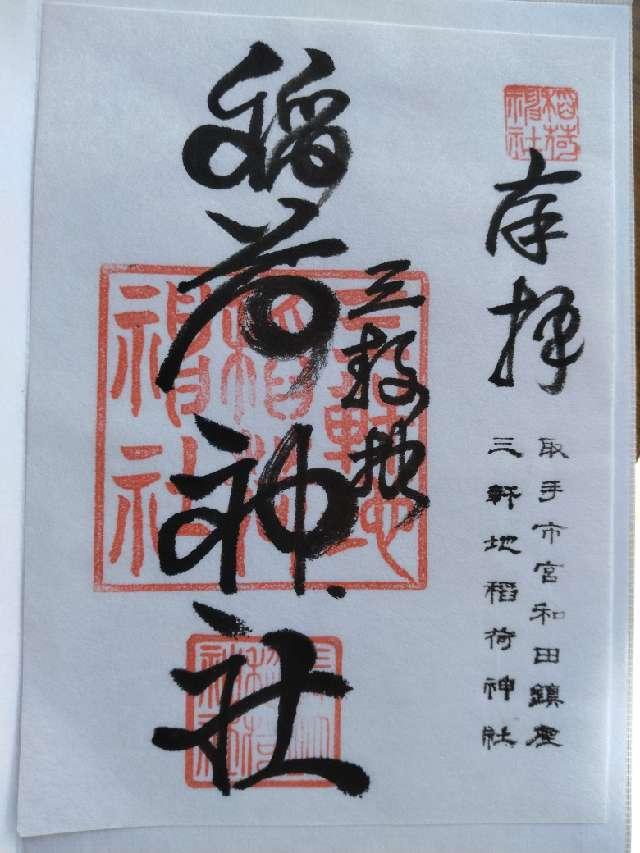 奉拝
取手市宮和田鎮座
三軒地稲荷神社
三軒地
稲荷神社
稲荷神社
三軒地稲荷神社